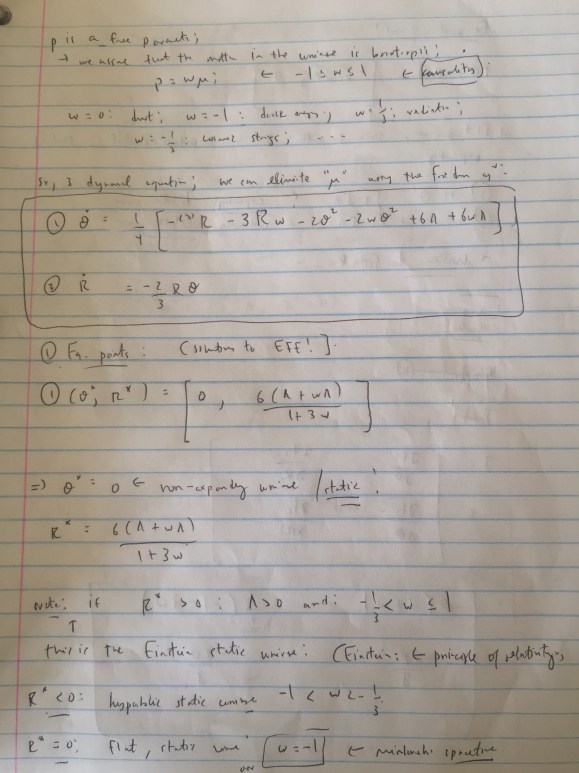 p is a free parameter;
→ we assume that the matter in the universe is barotropic;
p = wμ; ← -1 ≤ w ≤ 1 ← causality;
w = 0: dust; w = -1: dark energy; w = 1/3: radiation;
w = -1/3: cosmic strings; ...
So, 3 dynamical equations; we can eliminate "μ" using the Friedmann eqn:
① θ̇ = 1/4 [ -⁽³⁾R - 3Rw - 2θ² - 2wθ² + 6Λ + 6wΛ ]
② Ṙ = -2/3 R θ
① Eq. points: (solutions to EFE!).
① (θ*, R*) = [ 0, 6(Λ + wΛ) / 1+3w ]
⇒ θ* = 0 ← non-expanding universe / static
R* = 6(Λ + wΛ) / 1+3w
Note: if R* > 0: Λ>0 and: -1/3 < w ≤ 1
↑
this is the Einstein static universe: (Einstein: ← principle of relativity,
R* < 0: hyperbolic static universe -1 < w < -1/3
R* = 0: flat, static universe w = -1 ← Minkowski spacetime